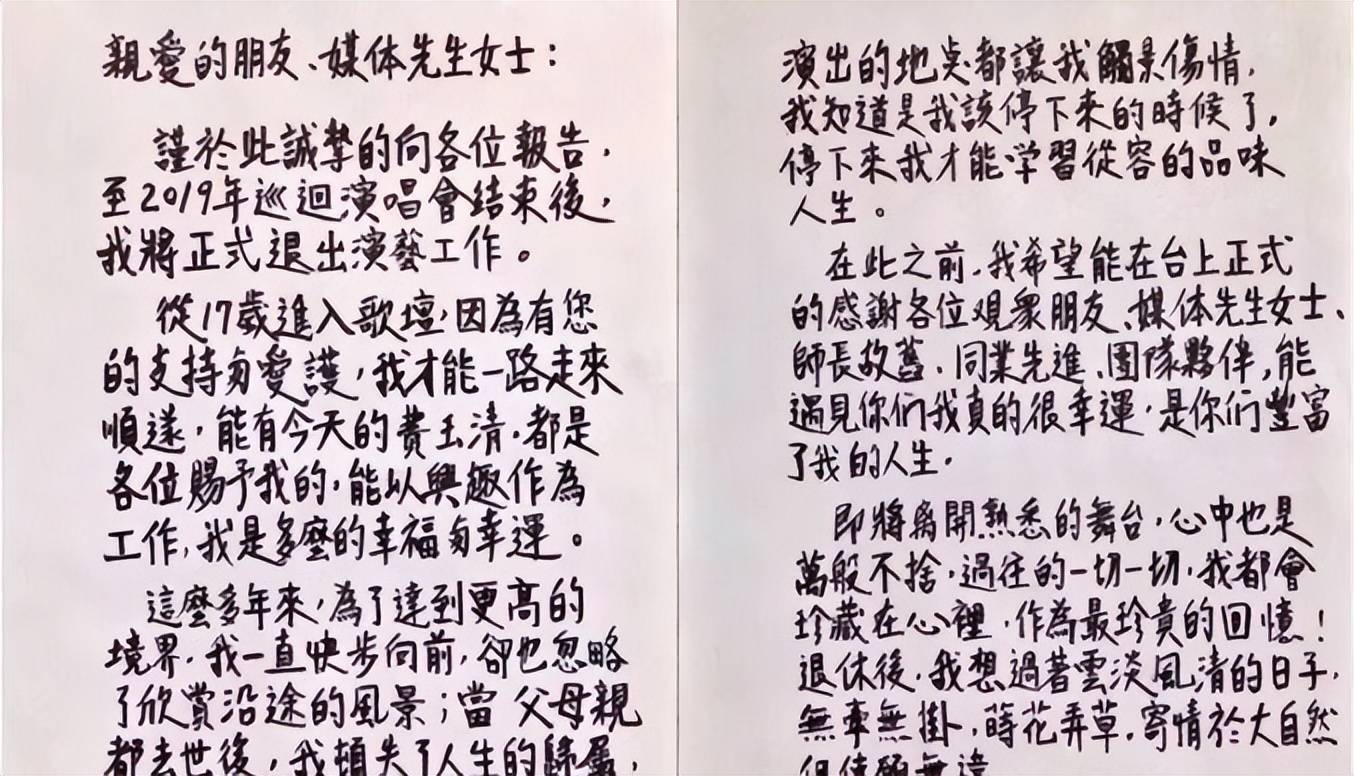 親愛的朋友、媒体先生女士：
謹於此誠摯的向各位報告，
至2019年巡迴演唱會结束後，
我將正式退出演藝工作。
從17歲進入歌壇，因為有您
的支持與愛護，我才能一路走來
順遂，能有今天的費玉清，都是
各位賜予我的，能以興趣作為
工作，我是多麼的幸福與幸運。
這麼多年來，為了達到更高的
境界，我一直快步向前，卻也忽略
了欣賞沿途的風景；當父母親
都去世後，我頓失了人生的歸屬，
演出的地点都讓我觸景傷情，
我知道是我該停下來的時候了，
停下來我才能学習從容的品味
人生。
在此之前，我希望能在台上正式
的感謝各位观眾朋友、媒体先生女士、
師長故舊、同業先進、團隊夥伴，能
遇見你们我真的很幸運，是你们豐富
了我的人生。
即將離開熟悉的舞台，心中也是
萬般不捨，過往的一切一切，我都會
珍藏在心裡，作為最珍貴的回憶！
退休後，我想過著雲淡風清的日子，
無牽無掛，蒔花弄草，寄情於大自然